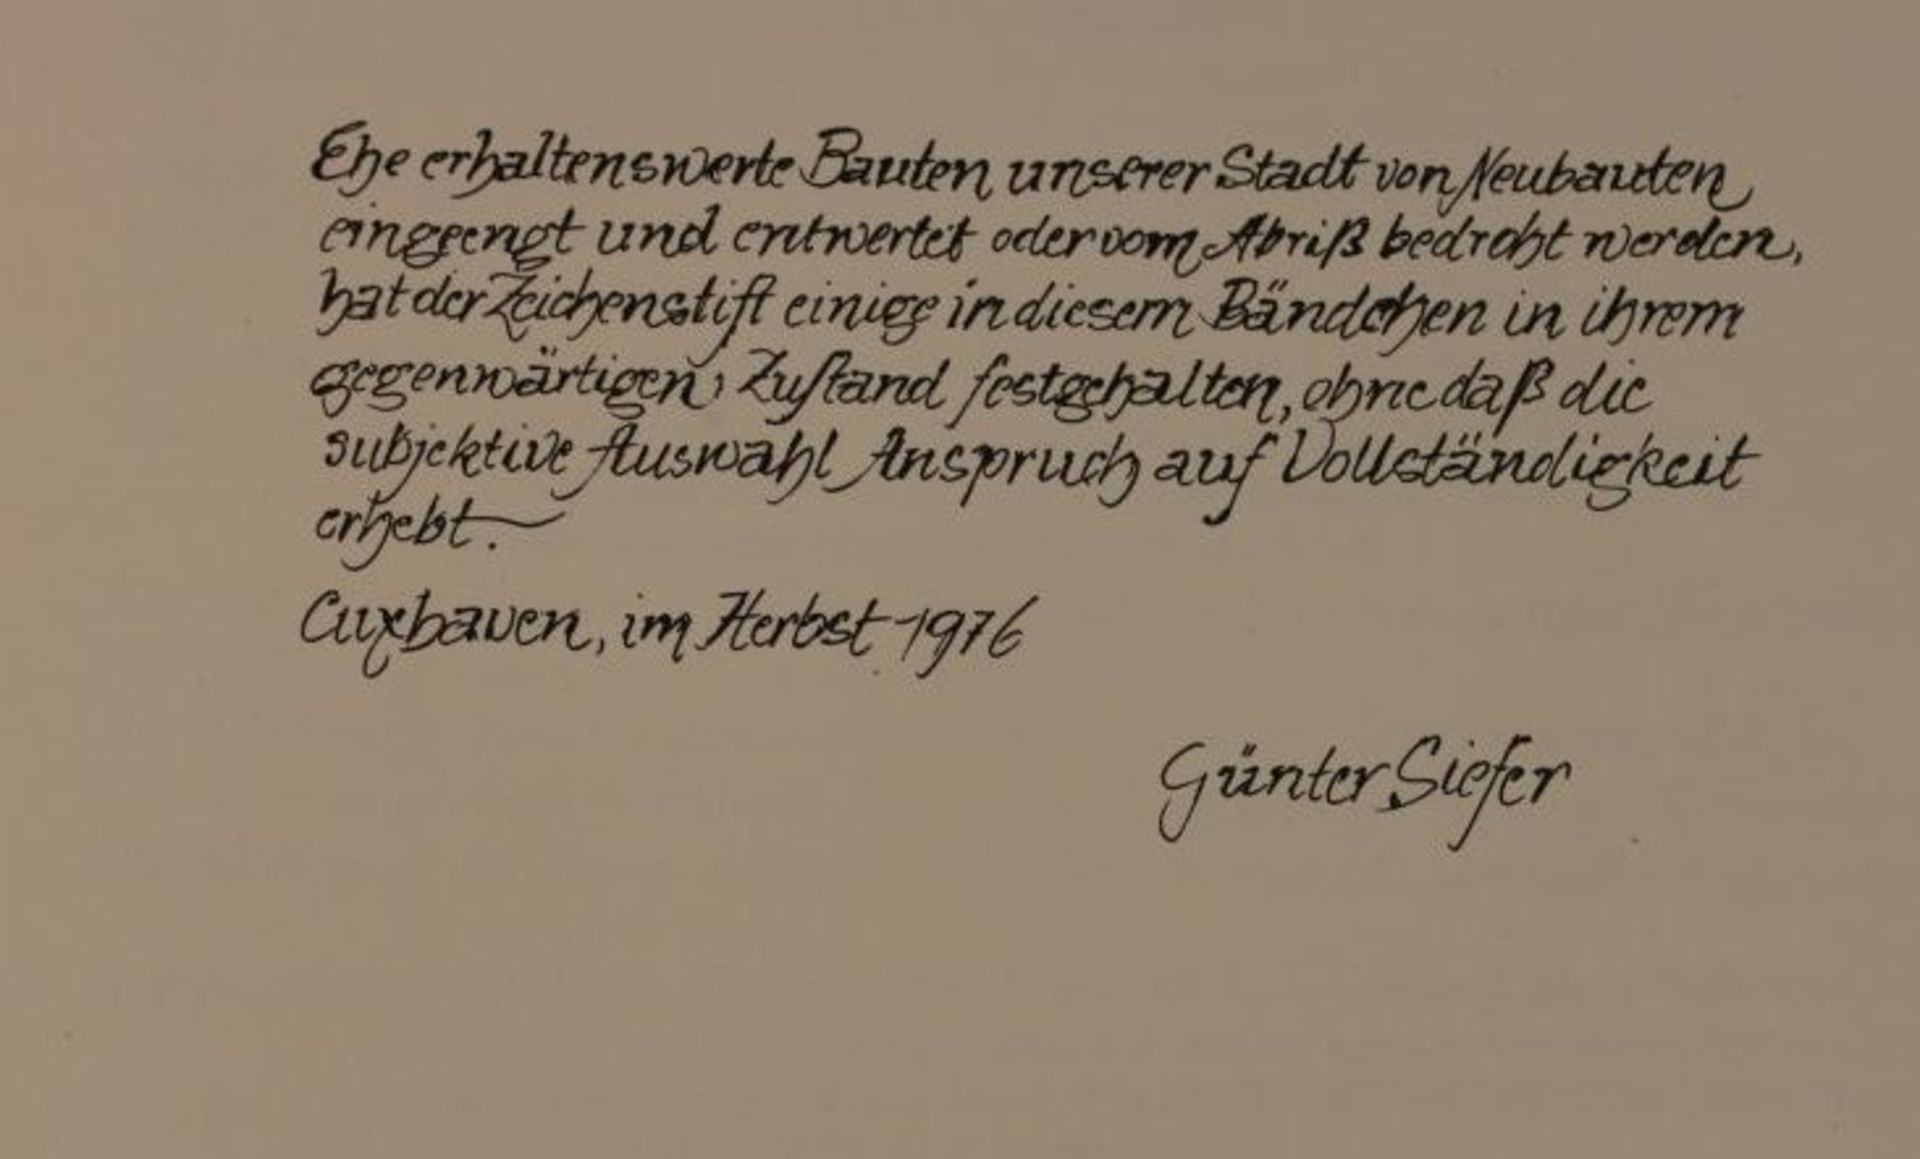 Ehe erhaltenswerte Bauten unserer Stadt von Neubauten
eingeengt und entwertet oder vom Abriß bedroht werden,
hat der Zeichenstift einige in diesem Bändchen in ihrem
gegenwärtigen Zustand festgehalten, ohne daß die
subjektive Auswahl Anspruch auf Vollständigkeit
erhebt.
Cuxhaven, im Herbst 1976
Günter Siefer